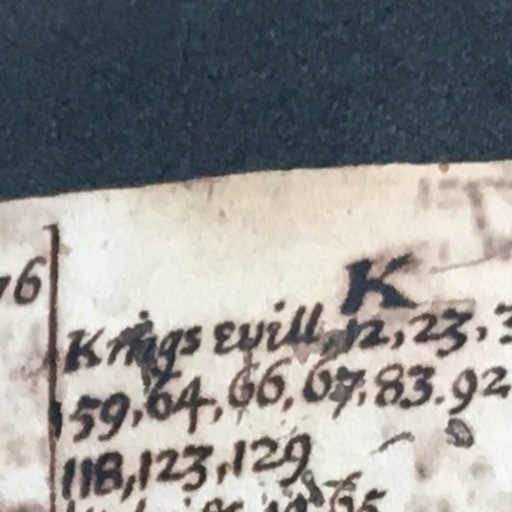 76
K
Kings evill, 12, 23, 3
59, 64, 66, 67, 83. 92
118, 123, 129